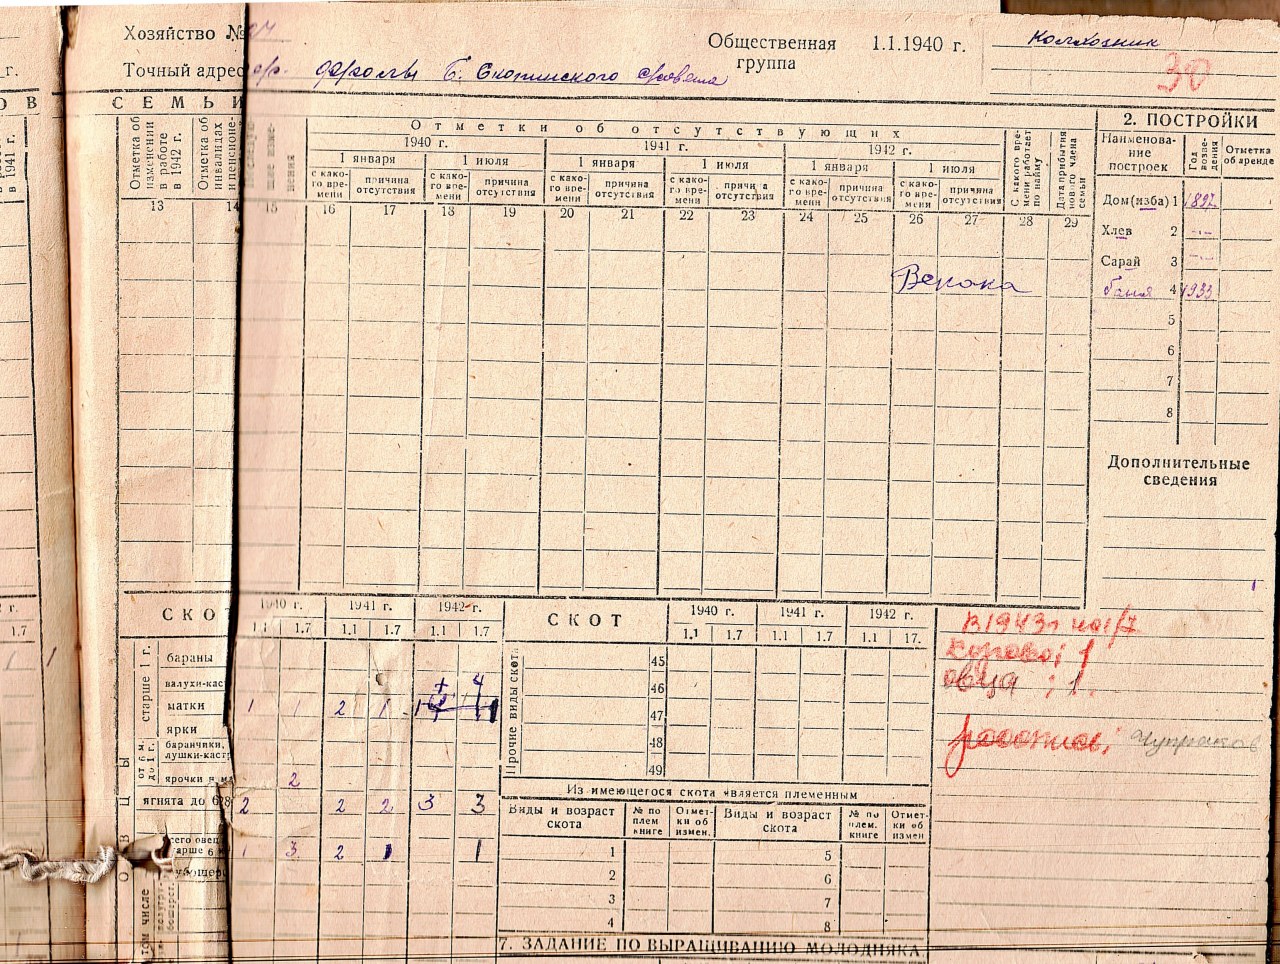 Хозяйство №
Общественная группа 1.1.1940 г. Колхозник
30
Точный адрес
Б. Скопинского
г.
О В
СЕМЬИ
в 1941 г.
Отметка об изменении в работе в 1942 г.
Отметка об инвалидах и пенсионе-
Отметки об отсутствующих
1940 г. 1941 г. 1942 г.
1 января 1 июля 1 января 1 июля 1 января 1 июля
с како-го вре-мени причина отсутствия с како-го вре-мени причина отсутствия с како-го вре-мени причина отсутствия с како-го вре-мени причина отсутствия с како-го вре-мени причина отсутствия с како-го вре-мени причина отсутствия
С какого вре-мени работает по найму
Дата прибытия нового члена семьи
13 14 15 16 17 18 19 20 21 22 23 24 25 26 27 28 29
2. ПОСТРОЙКИ
Наименова-ние построек Год возве-дения Отметка об аренде
Дом (изба) 1 1897
Хлев 2 —
Сарай 3 —
баня 4 1933
5
6
7
8
Дополнительные сведения
СКОТ
1940 г. 1941 г. 1942 г.
1.1 1.7 1.1 1.7 1.1 1.7
1.7
старше 1 г.
бараны
валухи-каст
матки 1 1 2 1
ярки
от 6 м. до 1 г.
баранчики,
лушки-кастр
ярочки 2
ягнята до 6 2 2 2 3 3
всего овец
старше 6 1 3 2 1 1
ОВЦЫ
том числе
СКОТ
1940 г. 1941 г. 1942 г.
1.1 1.7 1.1 1.7 1.1 17.
Прочие виды скота
45
46
47
48
49
Из имеющегося скота является племенным
Виды и возраст скота № по плем книге Отмет-ки об измен. Виды и возраст скота № по плем. книге Отмет-ки об измен
1 5
2 6
3 7
4 8
7. ЗАДАНИЕ ПО ВЫРАЩИВАНИЮ МОЛОДНЯКА.
в 1943 г на 1/7
корова; 1
овца ; 1.
роспись; Чупраков